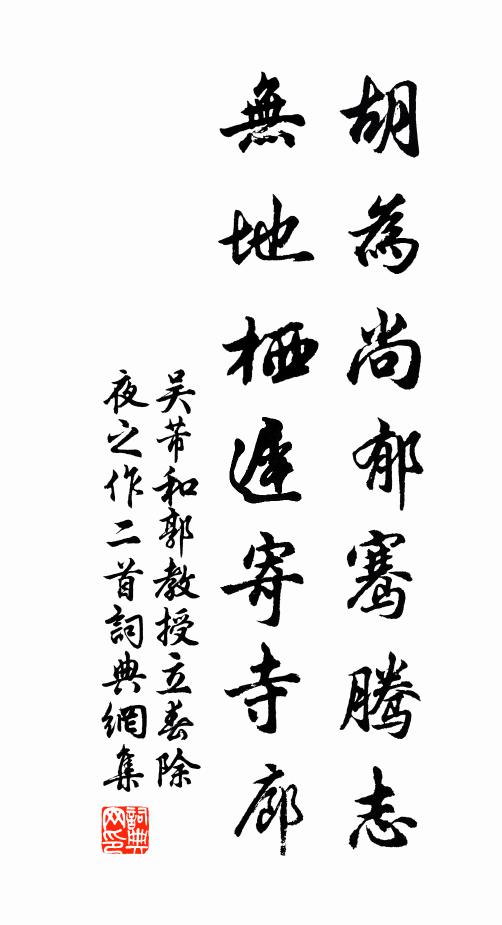 胡為尚郁騫騰志
無地栖遲寄寺廊
吴芾和郭教授立春除
夜之作二首詞典網集
詞典
网印